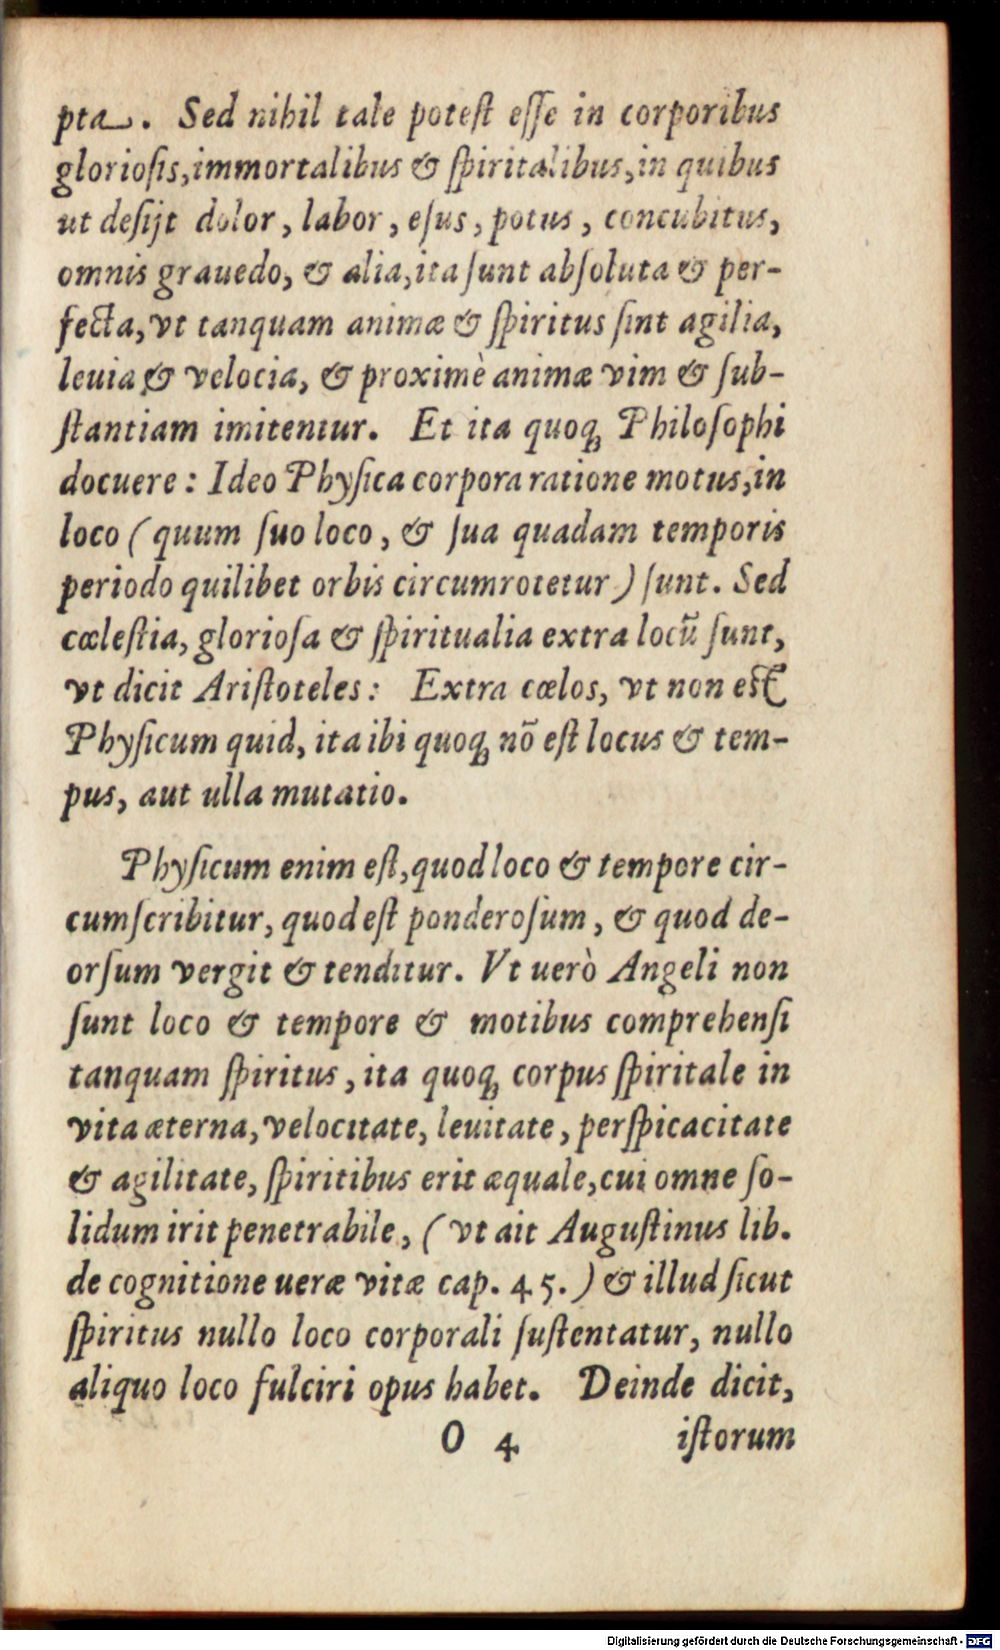 pta. Sed nihil tale potest esse in corporibus
gloriosis, immortalibus & spiritalibus, in quibus
ut desijt dolor, labor, esus, potus, concubitus,
omnis grauedo, & alia, ita sunt absoluta & per-
fecta, vt tanquam animæ & spiritus sint agilia,
leuia & velocia, & proximè animæ vim & sub-
stantiam imitentur. Et ita quoq; Philosophi
docuere: Ideo Physica corpora ratione motus, in
loco (quum suo loco, & sua quadam temporis
periodo quilibet orbis circumrotetur) sunt. Sed
cœlestia, gloriosa & spiritualia extra locũ sunt,
vt dicit Aristoteles: Extra cœlos, vt non est
Physicum quid, ita ibi quoq; nõ est locus & tem-
pus, aut ulla mutatio.
Physicum enim est, quod loco & tempore cir-
cumscribitur, quod est ponderosum, & quod de-
orsum vergit & tenditur. Vt uerò Angeli non
sunt loco & tempore & motibus comprehensi
tanquam spiritus, ita quoq; corpus spiritale in
vita æterna, velocitate, leuitate, perspicacitate
& agilitate, spiritibus erit æquale, cui omne so-
lidum irit penetrabile, (vt ait Augustinus lib.
de cognitione ueræ vitæ cap. 45.) & illud sicut
spiritus nullo loco corporali sustentatur, nullo
aliquo loco fulciri opus habet. Deinde dicit,
O 4 istorum
Digitalisierung gefördert durch die Deutsche Forschungsgemeinschaft - DFG